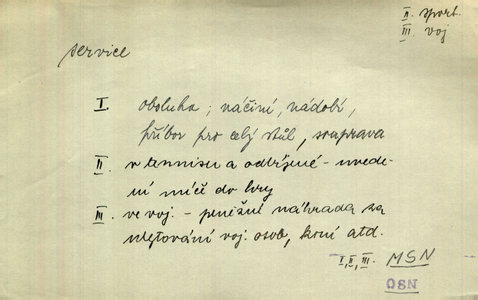 II. sport.
III. voj
service
I. obsluha; náčiní, nádobí,
příbor pro celý stůl, souprava
II. v tennisu a odbíjené - uvede-
ní míče do hry
III. ve voj. - peněžní náhrada za
ubytování voj. osob, koní atd.
I, II, III. MSN
OSN